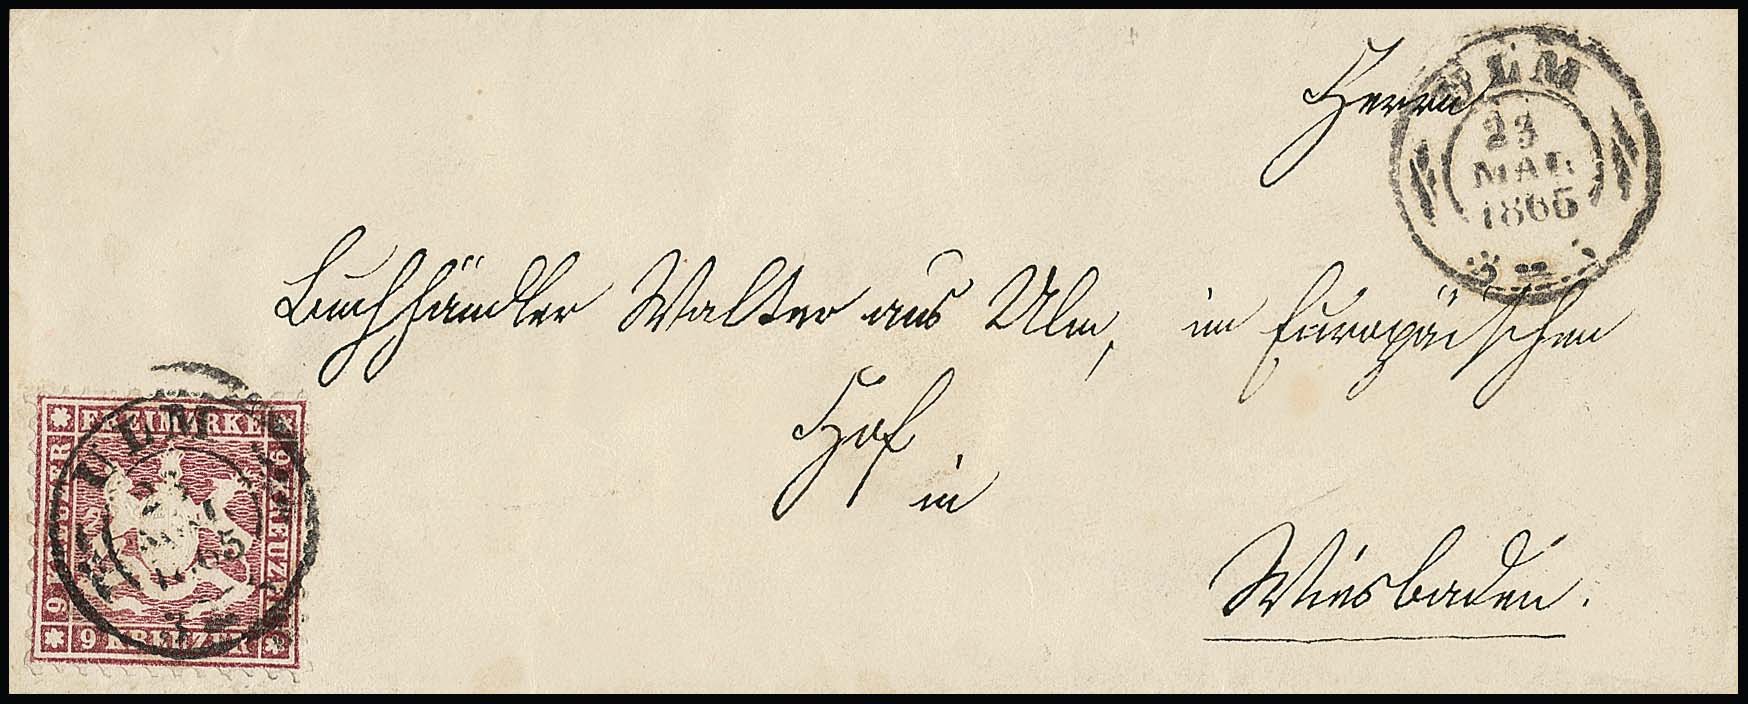 Herrn
ULM
23
MAR
1865
Buchhändler Walter aus Ulm, im Europäischen
Hof
in
Wiesbaden.
FREIMARKE
9 KREUZER
9 KREUZER
9 KREUZER
ULM
23
MAR
1865